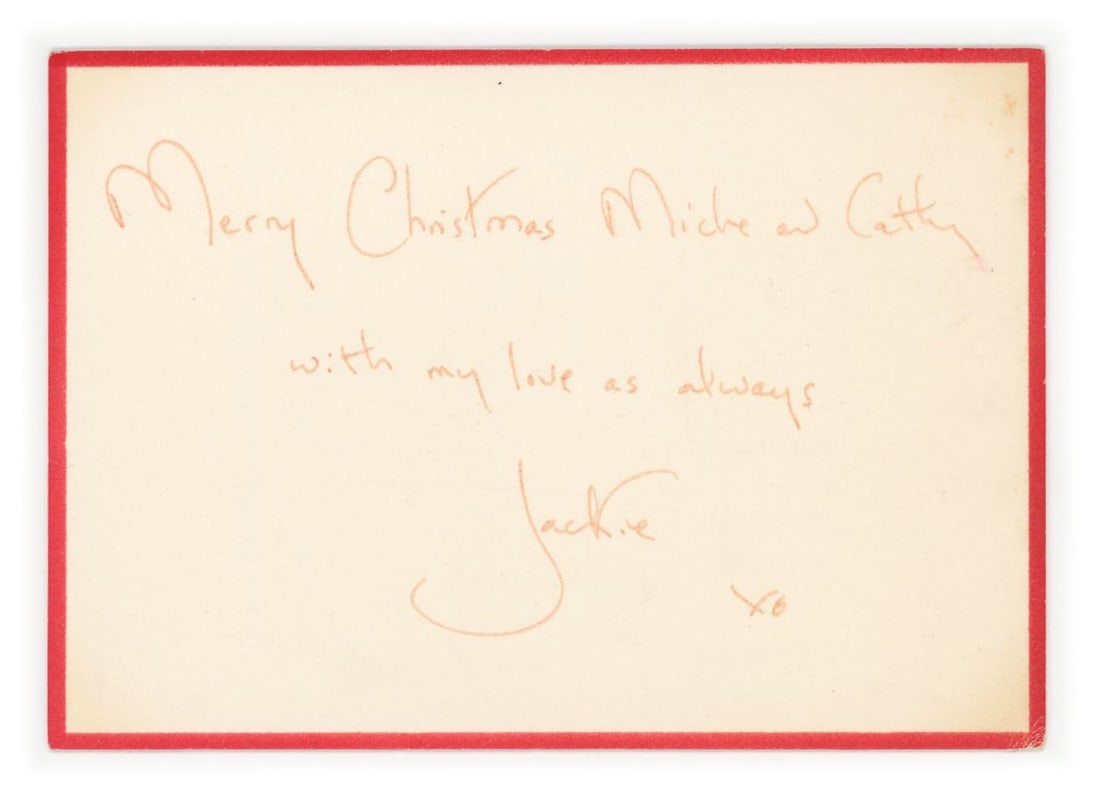 Merry Christmas Miche and Cathy
with my love as always
Jackie
xo